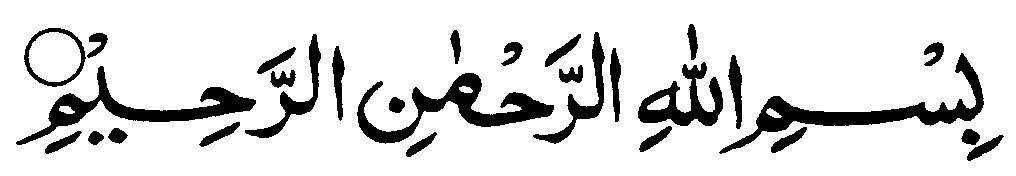 بِسْمِ اللهِ الرَّحْمٰنِ الرَّحِيْمِ ۝